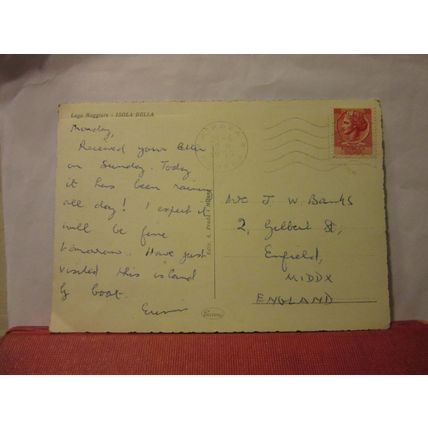 Lago Maggiore - ISOLA BELLA
Monday,
Received your letter
on Sunday. Today
it has been raining
all day! I expect it
will be fine
tomorrow. Have just
visited this island
by boat.
J. W. Banks
2, Gilbert St,
Enfield,
MIDDX
ENGLAND